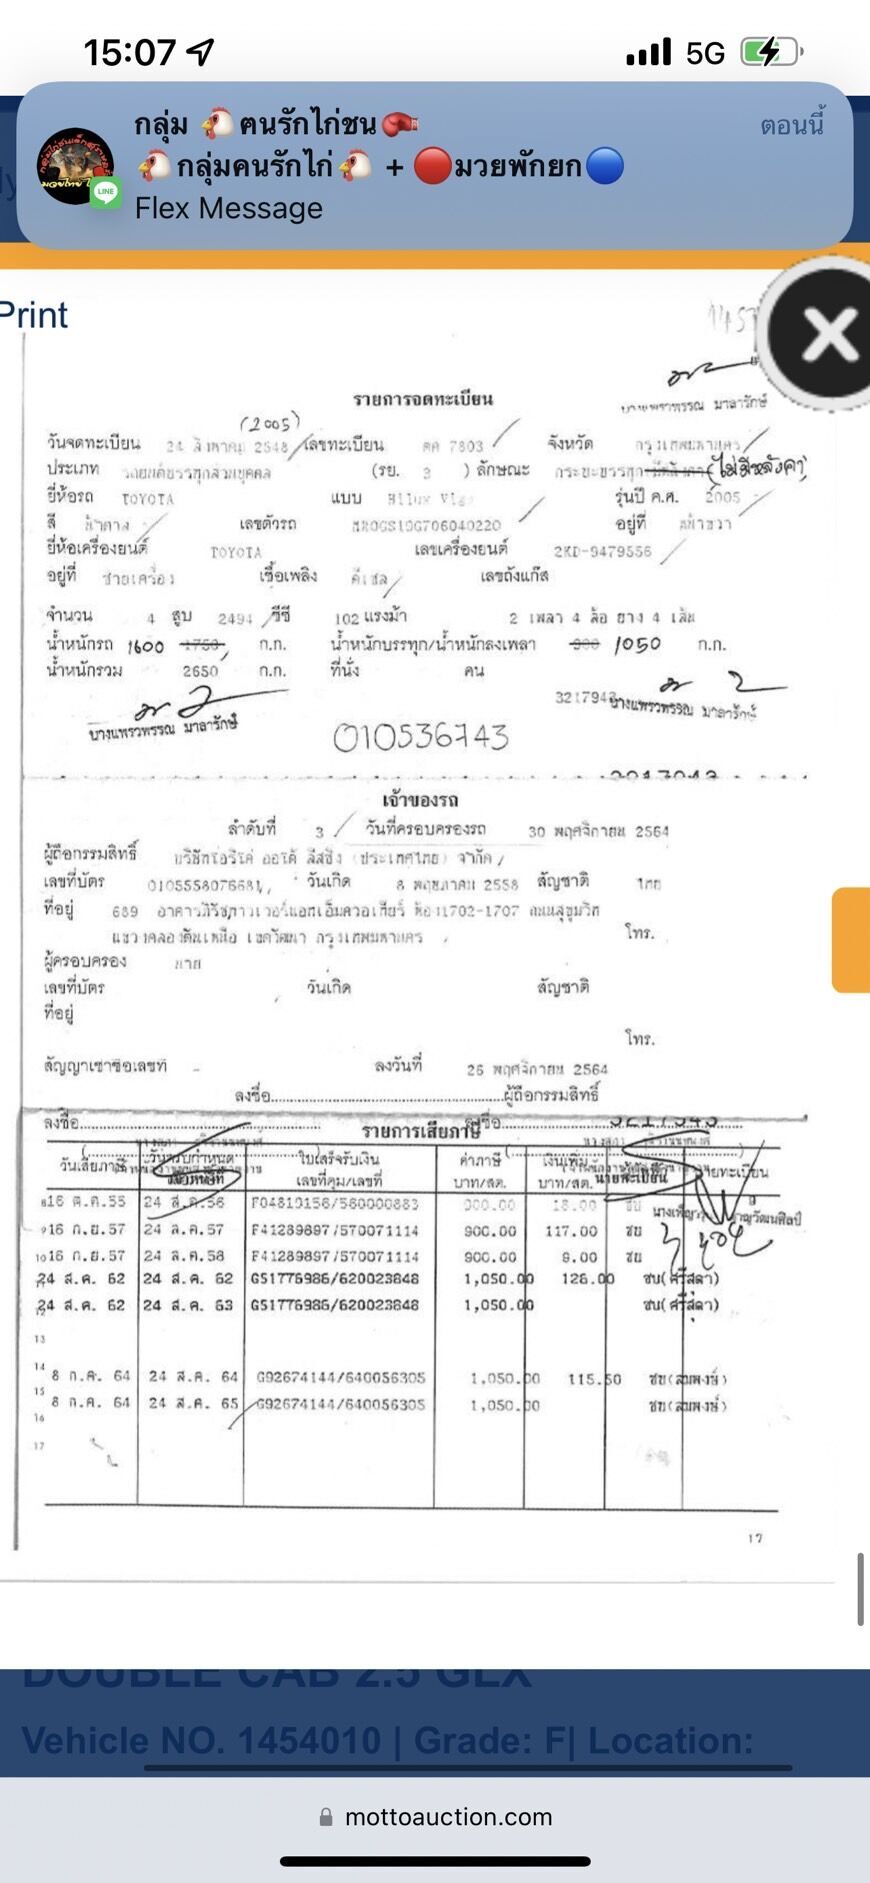 15:07
5G
กลุ่ม 🐔ฅนรักไก่ชน🥊
ตอนนี้
🐔กลุ่มคนรักไก่🐔 + 🔴มวยพักยก🔵
Flex Message
LINE
Print
รายการจดทะเบียน
(2005)
วันจดทะเบียน 24 สิงหาคม 2548 เลขทะเบียน ตค 7803 จังหวัด กรุงเทพมหานคร
ประเภท รถยนต์บรรทุกส่วนบุคคล (รย. 3 ) ลักษณะ กระบะบรรทุก (ไม่มีหลังคา)
ยี่ห้อรถ TOYOTA แบบ Hilux Vigo รุ่นปี ค.ศ. 2005
สี เลขตัวรถ MR0GS19G706040220 อยู่ที่
ยี่ห้อเครื่องยนต์ TOYOTA เลขเครื่องยนต์ 2KD-9479556
อยู่ที่ ซ้ายเครื่อง เชื้อเพลิง ดีเซล เลขถังแก๊ส
จำนวน 4 สูบ 2494 ซีซี 102 แรงม้า 2 เพลา 4 ล้อ ยาง 4 เส้น
น้ำหนักรถ 1600 1750 ก.ก. น้ำหนักบรรทุก/น้ำหนักลงเพลา 900 1050 ก.ก.
น้ำหนักรวม 2650 ก.ก. ที่นั่ง คน
นางแพรวพรรณ มาลารักษ์
010536743
เจ้าของรถ
ลำดับที่ 3 วันที่ครอบครองรถ 30 พฤศจิกายน 2564
ผู้ถือกรรมสิทธิ์ บริษัทโอริโค่ ออโต้ ลีสซิ่ง (ประเทศไทย) จำกัด
เลขที่บัตร 0105558076681 วันเกิด 8 พฤษภาคม 2558 สัญชาติ ไทย
ที่อยู่ 689 อาคารภิรัชทาวเวอร์แอทเอ็มควอเทียร์ ห้อง1702-1707 ถนนสุขุมวิท
แขวงคลองตันเหนือ เขตวัฒนา กรุงเทพมหานคร โทร.
ผู้ครอบครอง
เลขที่บัตร วันเกิด สัญชาติ
ที่อยู่
โทร.
สัญญาเช่าซื้อเลขที่ - ลงวันที่ 26 พฤศจิกายน 2564
ลงชื่อ ผู้ถือกรรมสิทธิ์
ลงชื่อ
รายการเสียภาษี
วันเสียภาษี วันครบกำหนด ใบเสร็จรับเงิน ค่าภาษี เงินเพิ่ม นายทะเบียน
เลขที่คุม/เลขที่ บาท/สต. บาท/สต.
8 16 ต.ค.55 24 ส.ค.56 F04810156/560000883 900.00 18.00 ชบ
9 16 ก.ย.57 24 ส.ค.57 F41289897/570071114 900.00 117.00 ชบ
10 16 ก.ย.57 24 ส.ค.58 F41289897/570071114 900.00 9.00 ชบ
24 ส.ค. 62 24 ส.ค. 62 G51776986/620023848 1,050.00 126.00 ชบ(ศรีสุดา)
24 ส.ค. 62 24 ส.ค. 63 G51776986/620023848 1,050.00 ชบ(ศรีสุดา)
13
14 8 ก.ค. 64 24 ส.ค. 64 G92674144/640056305 1,050.00 115.50 ชบ(สมพงษ์)
15 8 ก.ค. 64 24 ส.ค. 65 G92674144/640056305 1,050.00 ชบ(สมพงษ์)
16
17
17
DOUBLE CAB 2.5 GLX
Vehicle NO. 1454010 | Grade: F| Location:
mottoauction.com